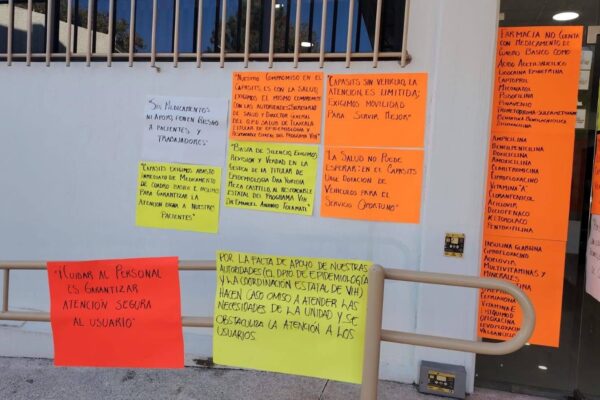 "SIN MEDICAMENTOS
NI APOYO, PONEN RIESGO
A PACIENTES Y
TRABAJADORES"
"Nuestro COMPROMISO EN EL
CAPASITS ES CON LA SALUD,
EXIGIMOS EL MISMO COMPROMISO
CON LAS AUTORIDADES: SECRETARIO
DE SALUD Y DIRECTOR GENERAL
DEL OPD SALUD DE TLAXCALA
TITULAR DE EPIDEMIOLOGIA Y
RESPONSABLE ESTATAL DEL PROGRAMA VIH"
"CAPASITS SIN VEHICULO, LA
ATENCION ES LIMITIDA;
EXIGIMOS MOVILIDAD
PARA SERVIR MEJOR"
"CAPASITS EXIGIMOS ABASTO
INMEDIATO DE MEDICAMENTO
DE CUADRO BASICO E INSUMO
PARA GARANTIZAR LA
ATENCION DIGNA A NUESTROS
PACIENTES"
"BASTA DE SILENCIO, EXIGIMOS
REVISION Y VERDAD EN LA
GESTION DE LA TITULAR DE
EPIDEMIOLOGIA DRA YURIDIA
MEZA CASTILLO, AL RESPONSABLE
ESTATAL DEL PROGRAMA VIH
DR. EMANUEL
"LA SALUD NO PUEDE
ESPERAR: EN EL CAPASITS
URGE DOTACION DE
VEHICULOS PARA EL
SERVICIO OPORTUNO"
"¡CUIDAR AL PERSONAL
ES GARANTIZAR
ATENCIÓN SEGURA
AL USUARIO"
POR LA FACTA DE APOYO DE NUESTRAS
AUTORIDADES (EL DPTO DE EPIDEMIOLOGÍA
Y LA COORDINACION ESTATAL DE VIH)
HACEN CASO OMISO A ATENDER LAS
NECESIDADES DE LA UNIDAD Y SE
OBSTACULIZA LA ATENCIÓN A LOS
USUARIOS.
FARMACIA NO CUENTA
CON MEDICAMENTO DE
CUADRO BASICO COMO
ACIDO ACETILSALICILICO
LIDOCAINA EPINEFRINA
CAPTOPRIL
MICONAZOL
PREDNISONA
AMPICILINA
BENCILPENICILINA
DOXICICLINA
AMOXICILINA
CLARITROMICINA
CIPROFLOXACINO
VITAMINA "A"
CLORANFENICOL
ACICLOVIR
DICLOFENACO
KETOROLACO
PENTOXIFILINA
INSULINA GLARGINA
CIPROFLOXACINO
ACICLOVIR
MULTIVITAMINAS Y
MINERALES
VITAMINA E
IMIQUIMOD
OFLOXACINA
LEVOFLOXACINO
VALGANCICLO